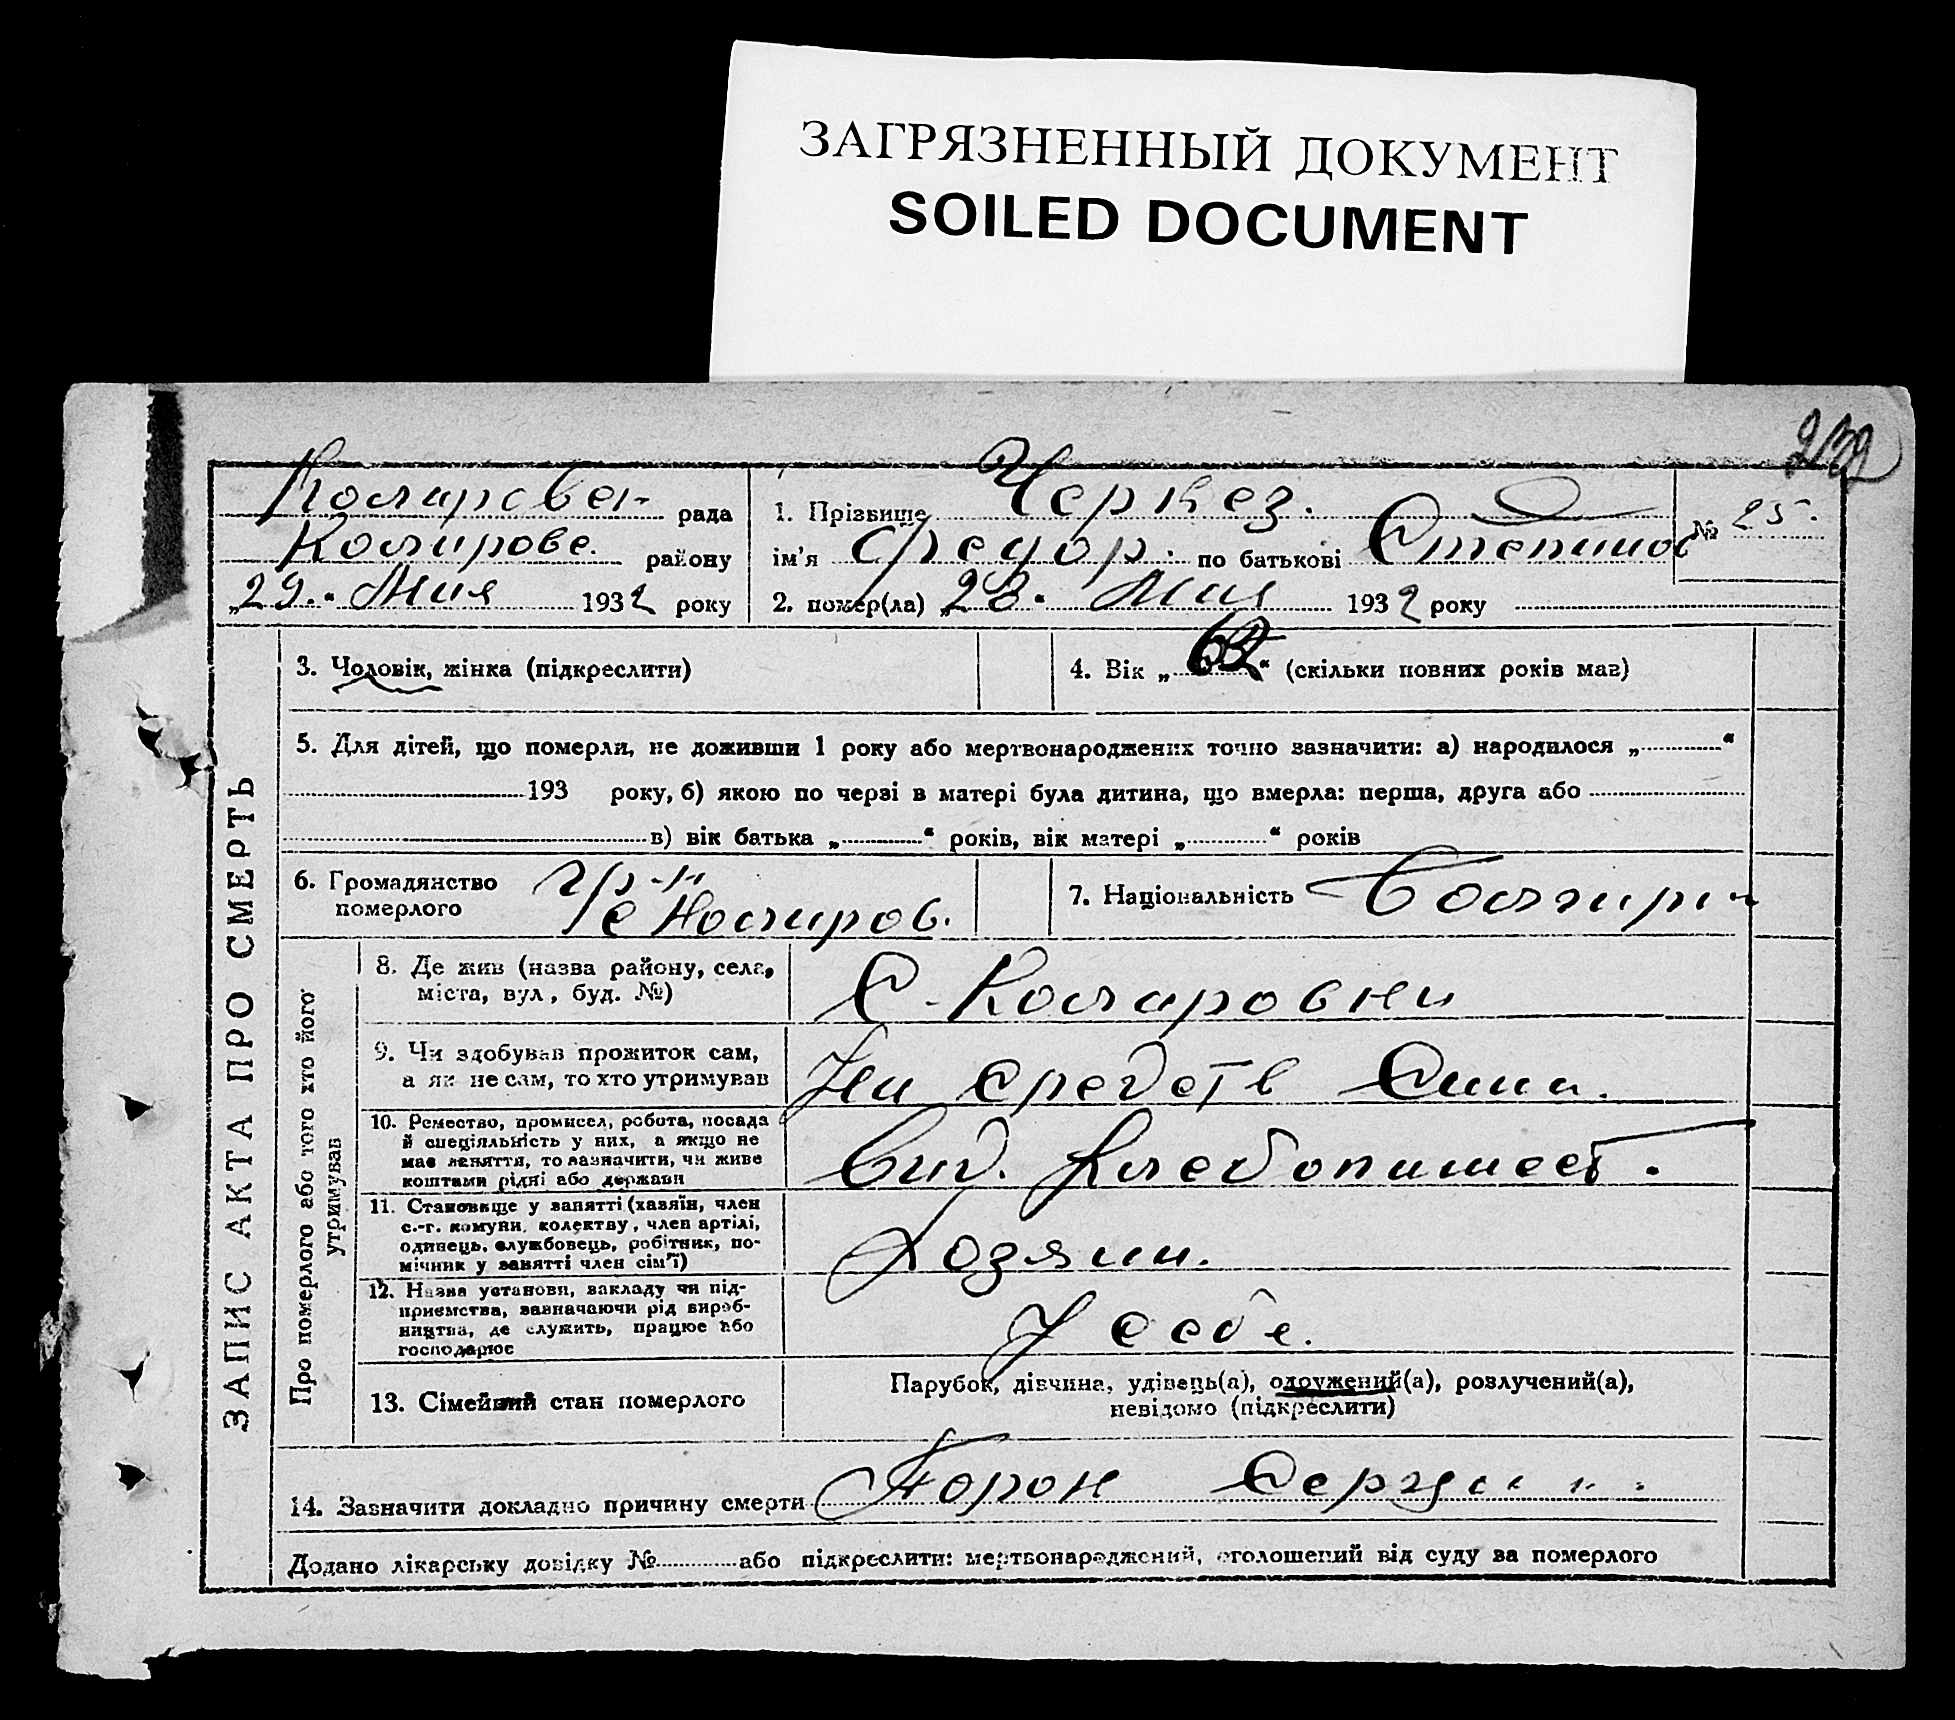 ЗАГРЯЗНЕННЫЙ ДОКУМЕНТ
SOILED DOCUMENT
232
ЗАПИС АКТА ПРО СМЕРТЬ
Коларовск рада
Коларовс. району
„29." Мая 1932 року
1. Прізвище Черкез.
ім'я Федор. по батькові Степанов
№ 25.
2. помер(ла) „28. Мая 1932 року
3. Чоловік, жінка (підкреслити)
4. Вік „62" (скільки повних років мав)
5. Для дітей, що померли, не доживши 1 року або мертвонароджених точно зазначити: а) народилося „ "
193 року, б) якою по черзі в матері була дитина, що вмерла: перша, друга або
в) вік батька „ " років, вік матері „ " років
6. Громадянство померлого гр-н
с Коларов.
7. Національність Болгарин
Про померлого або того хто його утримував
8. Де жив (назва району, села,
міста, вул., буд. №)
С. Коларовки
9. Чи здобував прожиток сам,
а як не сам, то хто утримував
На средств Сына.
10. Ремество, промисел, робота, посада
й спеціяльність у них, а якщо не
має заняття, то зазначити, чи живе
коштами рідні або держави
Хлебопашест.
11. Становище у занятті (хазяїн, член
с.-г. комуни, колектву, член артілі,
одинець, службовець, робітник, по-
мічник у занятті член сім'ї)
Хозяин.
12. Назва установи, закладу чи під-
приємства, зазначаючи рід вироб-
ництва, де служить, працює або
господарює
У себе.
13. Сімейний стан померлого
Парубок, дівчина, удівець(а), одружений(а), розлучений(а),
невідомо (підкреслити)
14. Зазначити докладно причину смерти Порок Сердца.
Додано лікарську довідку № або підкреслити: мертвонароджений, оголошений від суду за померлого